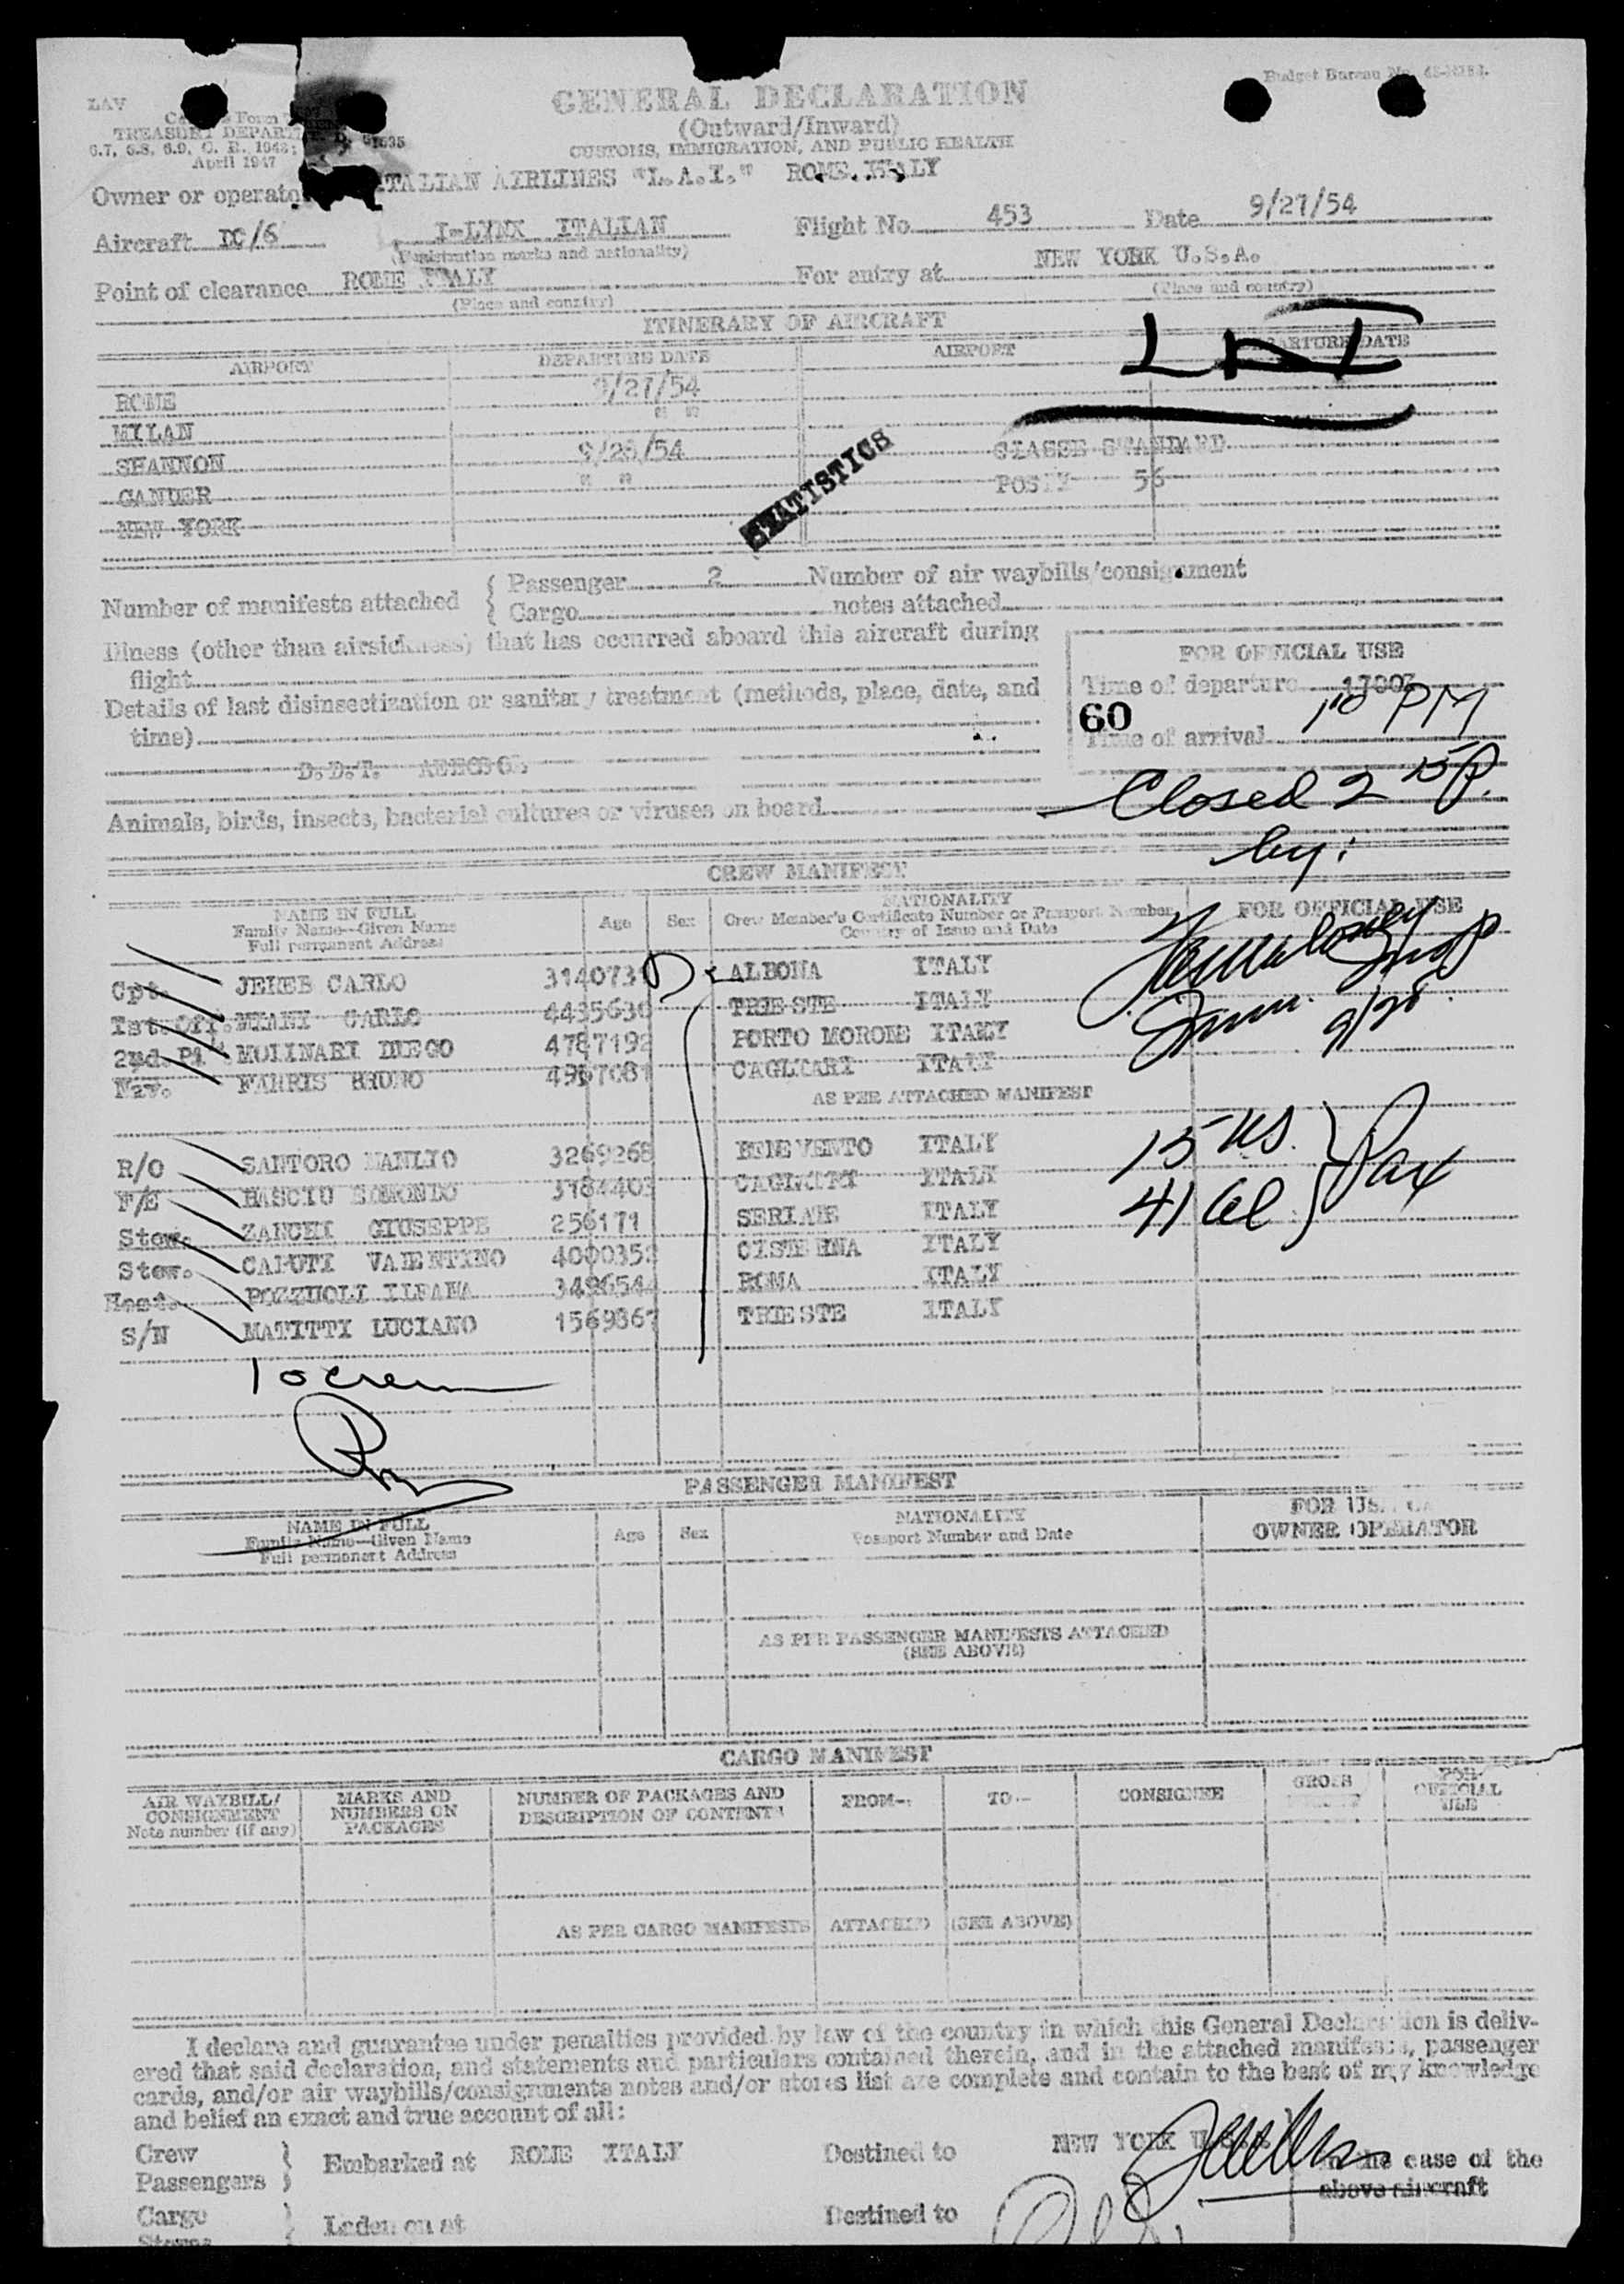 Budget Bureau No.
LAV
GENERAL DECLARATION
(Outward/Inward)
CUSTOMS, IMMIGRATION, AND PUBLIC HEALTH
Form
TREASURY DEPART
6.7, 6.8, 6.9, C. R. 1943;
April 1947
Owner or operato ITALIAN AIRLINES "L.A.I." ROME ITALY
Aircraft DC/6 I-LYNX ITALIAN Flight No. 453 Date 9/27/54
(Registration marks and nationality)
Point of clearance ROME ITALY For entry at NEW YORK U.S.A.
(Place and country) (Place and country)
ITINERARY OF AIRCRAFT
LAI
AIRPORT DEPARTURE DATE AIRPORT DEPARTURE DATE
ROME 9/27/54
MILAN " "
SHANNON 9/28/54 CLASSE STANDARD
GANDER " " POSTI 56
NEW YORK
STATISTICS
Number of manifests attached { Passenger 2 Number of air waybills/consignment
{ Cargo notes attached
Illness (other than airsickness) that has occurred aboard this aircraft during
flight
FOR OFFICIAL USE
Details of last disinsectization or sanitary treatment (methods, place, date, and
time)
Time of departure 1700Z
60
Time of arrival 1 10 PM
D.D.T.
Closed 2 15 P.
Animals, birds, insects, bacterial cultures or viruses on board
by:
CREW MANIFEST
NAME IN FULL
Family Name—Given Name
Full permanent Address
Age Sex
NATIONALITY
Crew Member's Certificate Number or Passport Number
Country of Issue and Date
FOR OFFICIAL USE
Cpt. CARLO ALBONA ITALY
1st. Off. MIANI CARLO 4435630 TRIESTE ITALY
2nd. Pi. MOLINARI DIEGO 4787192 PORTO MORONE ITALY
Nav. FARRIS BRUNO 4967081 CAGLIARI ITALY
Imm. 9/28.
AS PER ATTACHED MANIFEST
R/O SANTORO MANLIO 3269268 BENEVENTO ITALY
F/E CAGLIARI ITALY
Stew. ZANCHI GIUSEPPE 256171 SERIATE ITALY
Stew. CAPUTI VALENTINO 4000352 CISTERNA ITALY
Host. POZZUOLI ILEANA 3496544 ROMA ITALY
S/N MATITTI LUCIANO 1569867 TRIESTE ITALY
15 US.
41 Al } Pax
10 crew
PASSENGER MANIFEST
NAME IN FULL
Family Name—Given Name
Full permanent Address
Age Sex
NATIONALITY
Passport Number and Date
FOR USE
OWNER OPERATOR
AS PER PASSENGER MANIFESTS ATTACHED
(SEE ABOVE)
CARGO MANIFEST
AIR WAYBILL/
CONSIGNMENT
Note number (if any)
MARKS AND
NUMBERS ON
PACKAGES
NUMBER OF PACKAGES AND
DESCRIPTION OF CONTENTS
FROM— TO— CONSIGNEE GROSS
FOR
OFFICIAL
USE
AS PER CARGO MANIFESTS ATTACHED (SEE ABOVE)
I declare and guarantee under penalties provided by law of the country in which this General Declaration is deliv-
ered that said declaration, and statements and particulars contained therein, and in the attached manifests, passenger
cards, and/or air waybills/consignments notes and/or stores list are complete and contain to the best of my knowledge
and belief an exact and true account of all:
Crew
Passengers } Embarked at ROME ITALY Destined to NEW YORK
in the case of the
above aircraft
Cargo
Stores } Laden on at Destined to